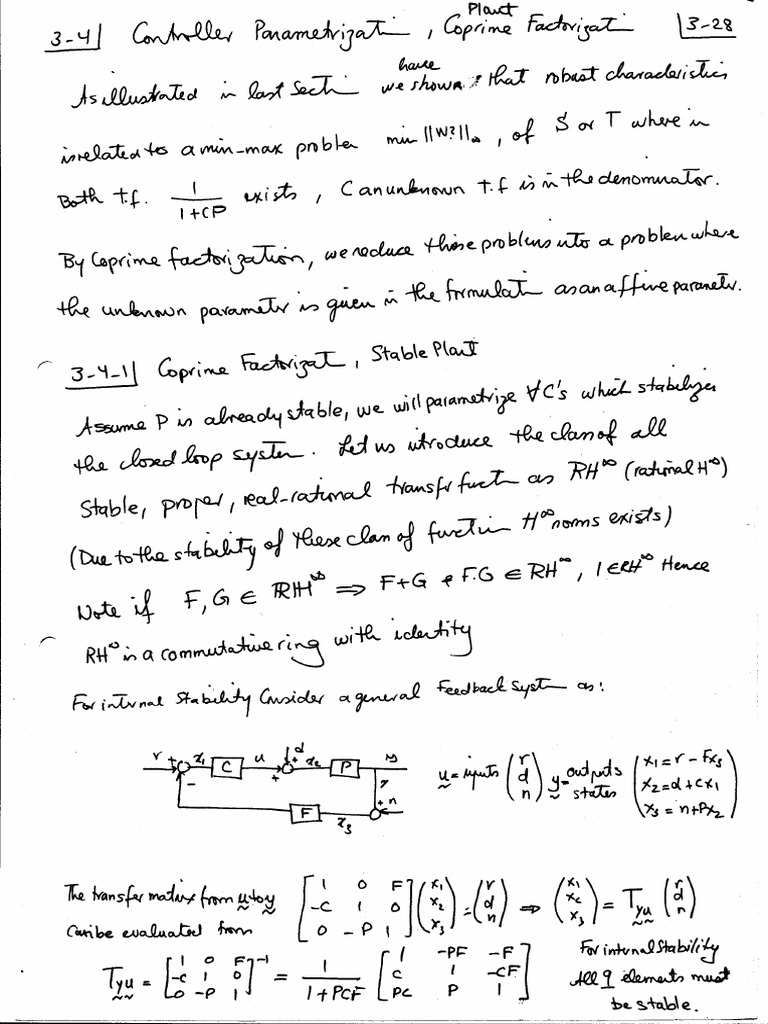 3-4| Controller Parametrizati , Plant Coprime Factorizat |3-28
As illustrated in last Secti have we shown that robust characteristics
is related to a min-max problem min ||W?||∞ , of S or T where in
Both t.f. 1/(1+CP) exists , C an unknown t.f is in the denominator.
By Coprime factorization, we reduce these problems into a problem where
the unknown parameter is given in the formulati as an affine parameter.
3-4-1| Coprime Factorizat , Stable Plant
Assume P is already stable, we will parametrize ∀C's which stabilizes
the closed loop system. Let us introduce the class of all
Stable, proper, real-rational transfer funct as RH∞ (rational H∞)
(Due to the stability of these class of function H∞ norms exists)
Note if F,G ∈ RH∞ ⇒ F+G & F.G ∈ RH∞ , 1 ∈ RH∞ Hence
RH∞ is a commutative ring with identity
For internal Stability Consider a general Feedback System as:
r + x1 C u + d + x2 P y
- F x3 + n
u = inputs (r d n) y = outputs states (x1 = r - Fx3
x2 = d + Cx1
x3 = n + Px2)
The transfer matrix from u to y [1 0 F; -C 1 0; 0 -P 1] (x1 x2 x3) = (r d n) ⇒ (x1 x2 x3) = Tyu (r d n)
can be evaluated from
Tyu = [1 0 F; -C 1 0; 0 -P 1]^-1 = 1/(1+PCF) [1 -PF -F; C 1 -CF; PC P 1] For internal Stability
All 9 elements must
be stable.